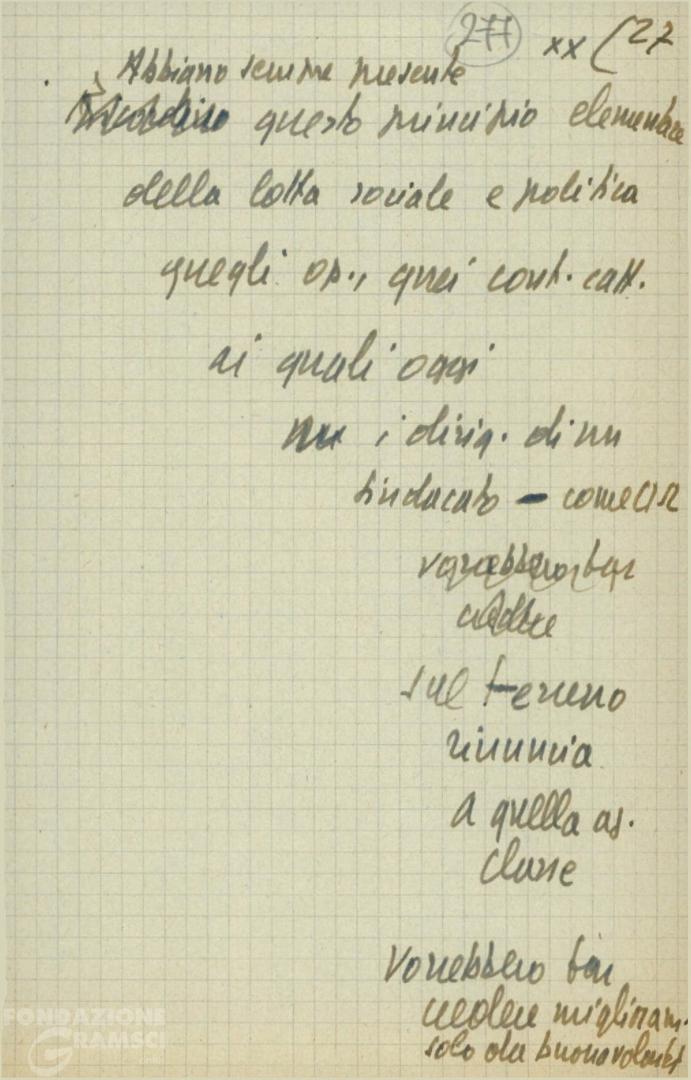 277 xx (27
Abbiamo sempre presente
Ricordino questo principio elementare
della lotta sociale e politica
quegli op., quei cont. catt.
ai quali oggi
i dirig. di un
sindacato - come CISL
vorrebbero far
credere
sul terreno
rinuncia
a quella as.
classe
Vorrebbero far
credere miglioram.
solo da buona volontà
FONDAZIONE
GRAMSCI